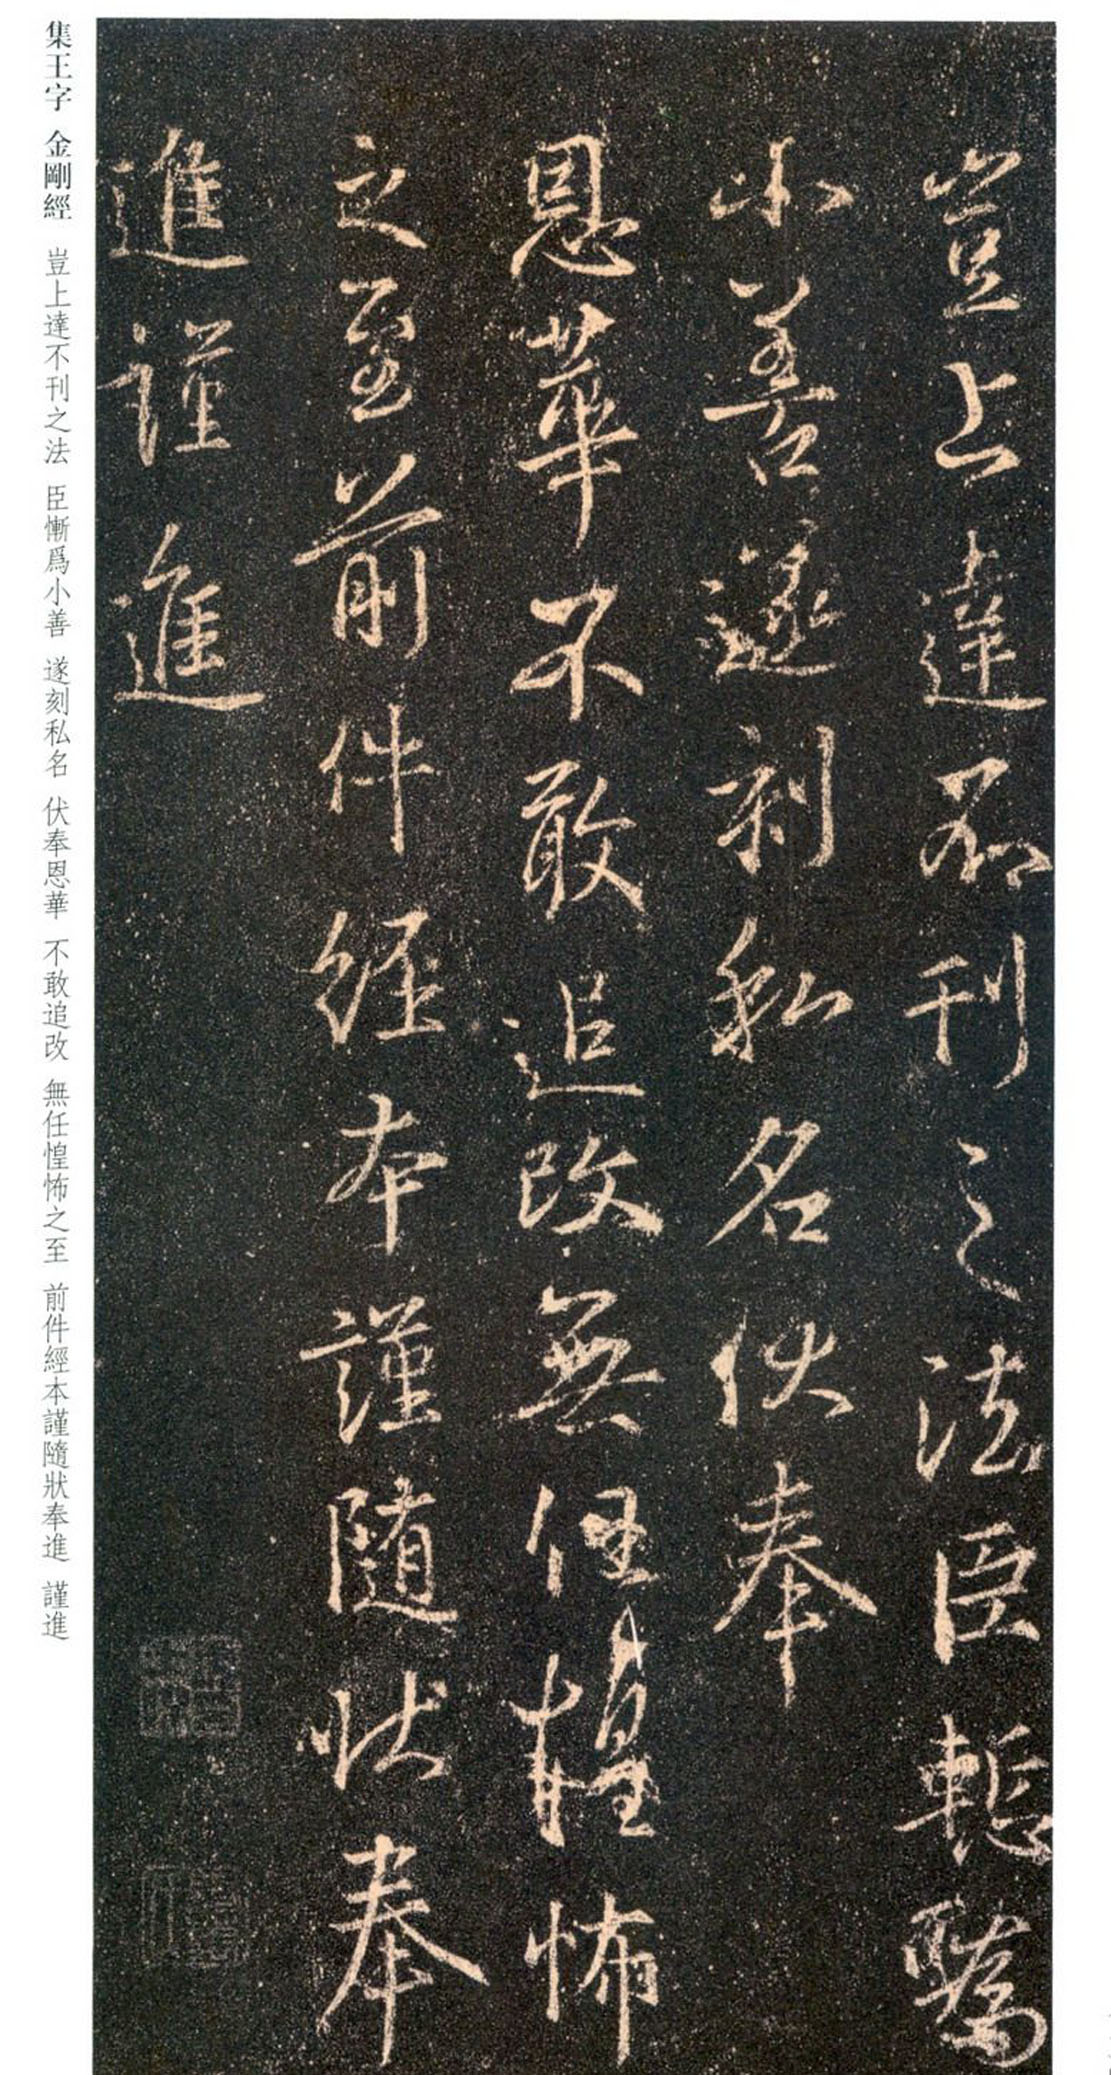 豈上達不刊之法臣慙驕
小善遂刻私名伏奉
恩華不敢追改無任惶怖
之至前件經本謹隨狀奉
進謹進
集王字 金剛經 豈上達不刊之法 臣慚爲小善 遂刻私名 伏奉恩華 不敢追改 無任惶怖之至 前件經本謹隨狀奉進 謹進